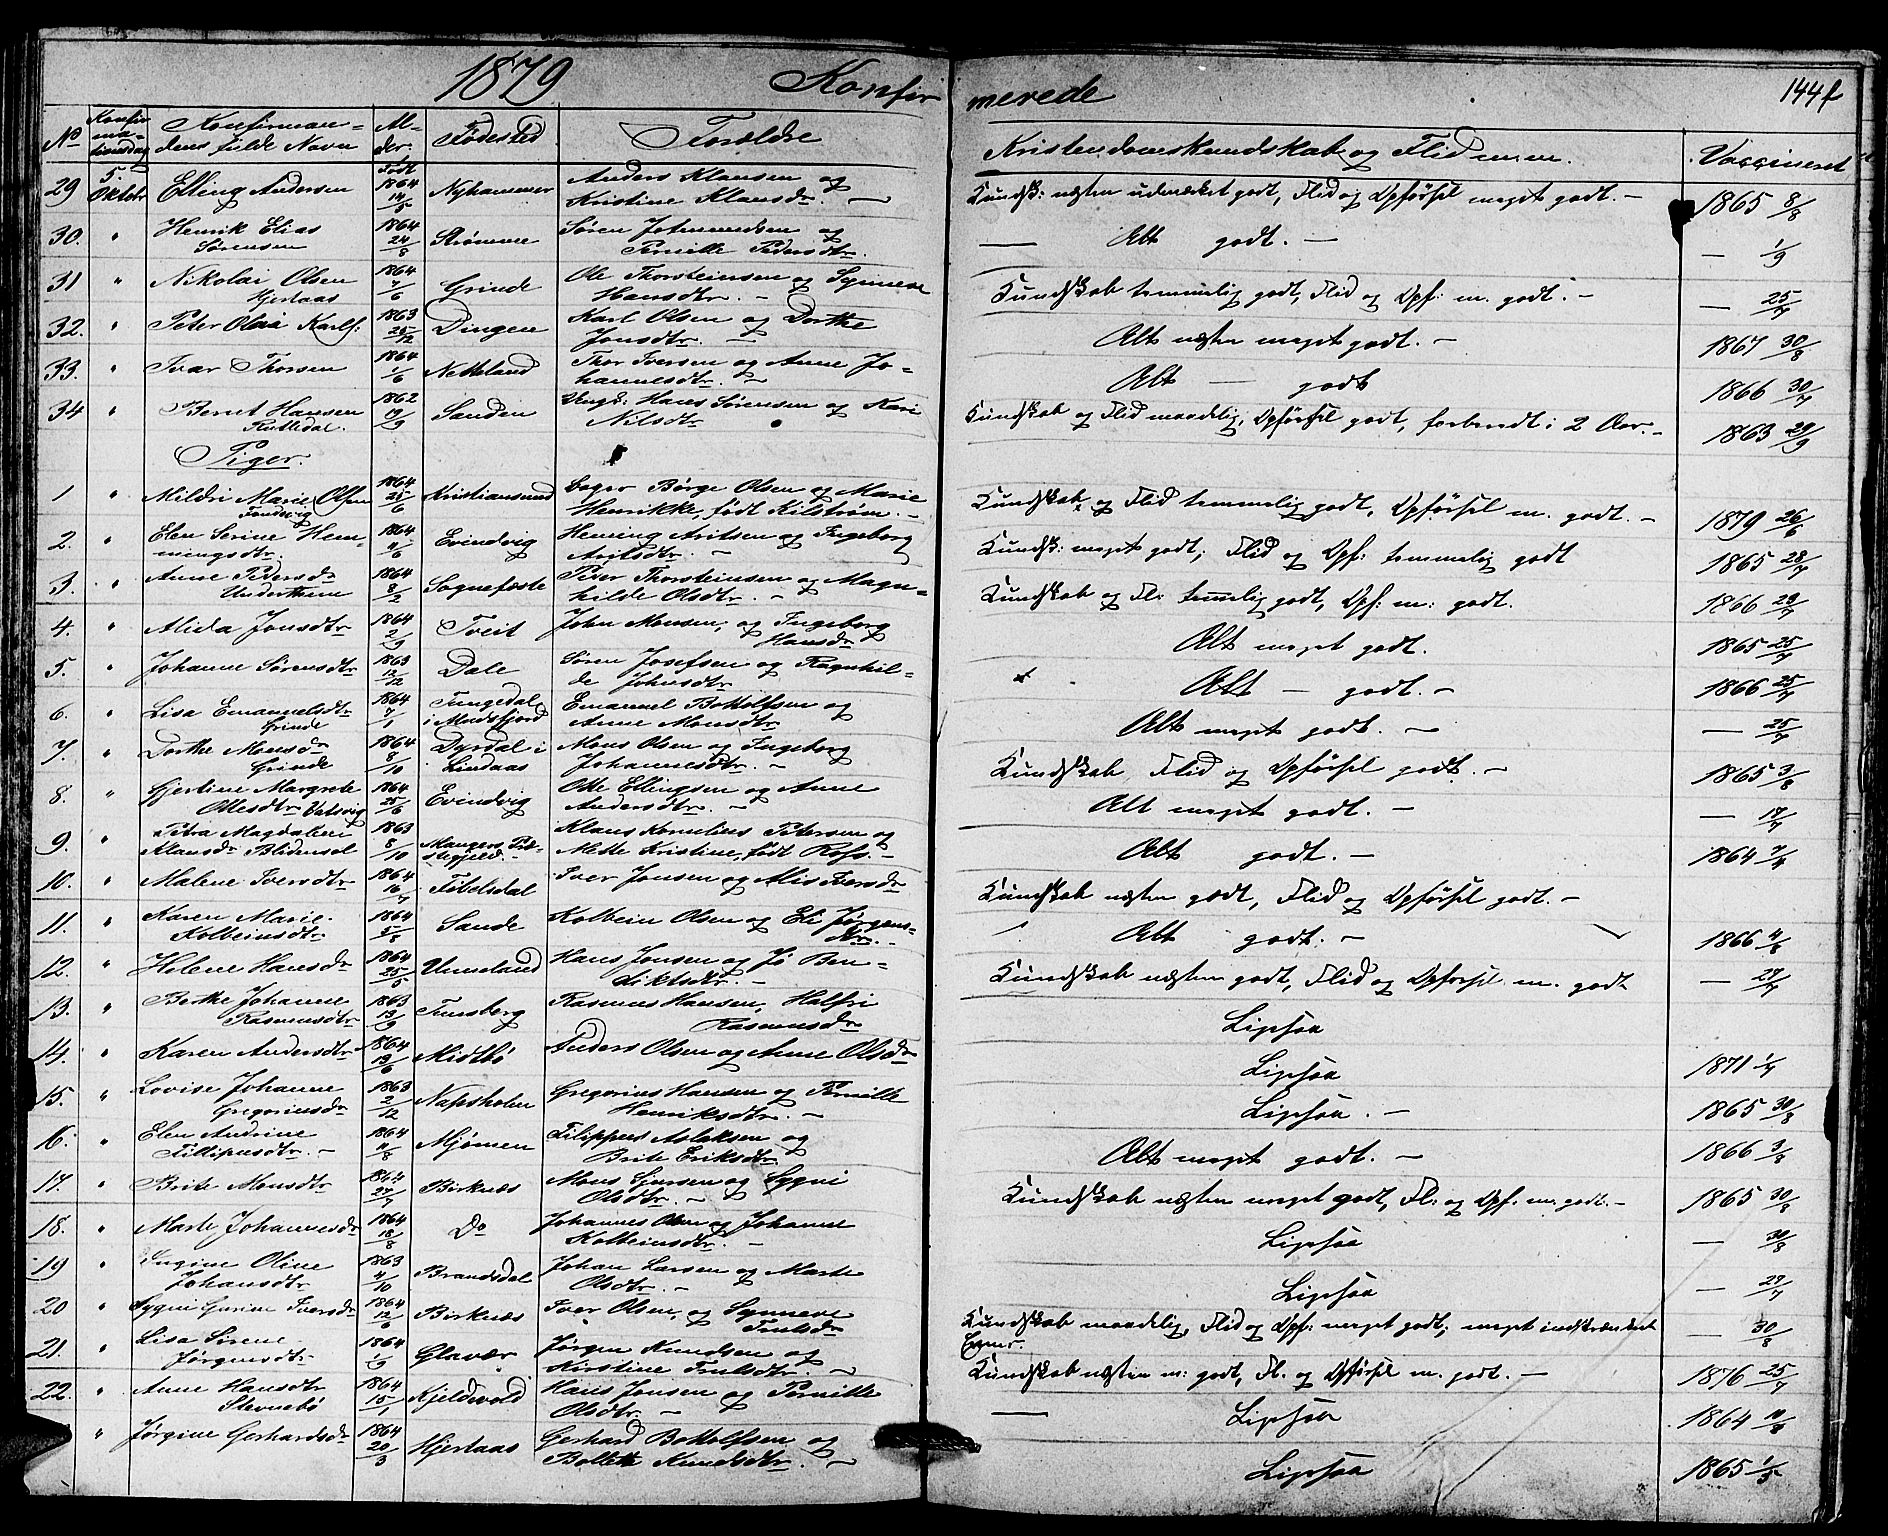 1879 Konfirmerede 144f
No Konfirmationsdag Konfirmandens fulde Navn Alder. Født Fødested Forældre Kristendomskundskab og Flid m.m. Vaccineret
29 5. Oktobr Elling Andersen 1864 14/5 Nyhammer Anders Klausen og Kristine Klausdr. — Kundsk: næsten udmærket godt, Flid og Opførsel meget godt. — 1865 8/8
30. " Henrik Elias Sørensen 1864 24/8 Strømme Søren Johannesen og Pernille Pedersdtr. — Alt godt. — — 1/9
31 " Nikolai Olsen Hjertaas 1864 7/6 Grinde Ole Thorsteinsen og Synneve Hansdtr. — Kundskab temmelig godt, Flid og Opf: m. godt. — — 25/7
32. " Peter Olai Karls: 1863 25/12 Dingen Karl Olsen og Dorthe Jonsdtr. — Alt næsten meget godt. — 1867 30/8
33. " Ivar Thorsen 1864 1/6 Netteland Thor Iversen og Anne Johannesdtr. — Alt — godt 1866 30/7
34 " Bernt Hansen Rutledal. 1862 19/9 Sanden Ungk: Hans Sørensen og Kari Nilsdtr Kundskab og Flid maadelig, Opførsel godt, forberedt i 2 Aar. — 1863 29/9
Piger.
1 " Mildri Marie Olsen 1864 25/6 Kristiansund Børge Olsen og Marie Henrikke, født Kilstrøm. — Kundskab og Flid temmelig godt, Opførsel m. godt. — 1879 26/6
2. " Elen Serine Hemmingsdtr. 1864 11/6 Evindvig Heming Avitsen og Ingeborg Avitsdtr. — Kundsk: meget godt; Flid og Opf: temmelig godt 1865 28/7
3. " Anne Pedersdr Underthun 1864 8/2 Sognefæste Peder Thorsteinsen og Magnhilde Olsdtr. — Kundskab og Fl: temmelig godt, Opf: m: godt. 1866 29/7
4. " Alida Jonsdtr 1864 2/9 Tveit John Monsen, og Ingeborg Hansdr Alt meget godt. 1865 25/7
5. " Johanne Sørensdtr 1863 12/12 Dale Søren Josefsen og Ragnhilde Johnsdtr Alt — godt. — 1866 25/7
6. " Lisa Emanuelsdtr Grinde 1864 7/1 Tungedal i Masfjord Emanuel Bottolfsen og Anne Monsdtr Alt meget godt. — — 25/7
7. " Dorthe Monsdr Grinde 1864 8/10 Dyrdal i Lindaas Mons Olsen og Ingeborg Johannesdtr. — Kundskab, Flid og Opførsel godt. — 1865 3/8
8. " Gjertine Margrete Ottesdtr Vatsvig 1864 25/6 Evindvig Otte Ellingsen og Anne Andersdtr. — Alt meget godt. — — 17/7
9. " Petra Magdalene Klausdr Blidensol 1863 8/10 Mangers Præstegjeld. Klaus Kornelius Petersen og Mette Kristine, født Ross. — Alt godt. — 1864 7/4
10. " Malene Iversdtr 1864 16/7 Fivelsdal Iver Jonsen og Alis Iversdr Kundskab næsten godt, Flid og Opførsel godt. —
11. " Karen Marie Kolbeinsdtr 1864 5/8 Sande Kolbein Olsen og Eli Jørgensdtr. — Alt godt. — 1866 4/8
12. " Helene Hansdr 1864 25/5 Unneland Hans Jonsen og Jo Benediktsdtr. — Kundskab næsten godt, Flid og Opførsel m. godt — 27/7
13. " Berthe Johanne Rasmusdtr 1863 13/9 Tunsberg Rasmus Hansen, Halfri Rasmusdr Ligesaa
14. " Karen Andersdtr 1864 13/6 Midtbø Anders Olsen og Anne Olsdr Ligesaa 1871 1/7
15. " Lovise Johanne Gregoriusdr 1863 2/12 Napsholm Gregorius Hansen og Pernille Henriksdtr. — Ligesaa. — 1865 30/8
16. " Elen Andrine Fillipusdtr. — 1864 11/8 Mjømen Filippus Aslaksen og Brite Eriksdtr. Alt meget godt. — 1866 3/8
17. " Brite Monsdtr 1864 27/7 Birknæs Mons Sjursen og Sygni Olsdtr. — Kundskab næsten meget godt, Fl: og Opf: m: godt. — 1865 30/8
18. " Marte Johannesdr 1864 18/8 Do Johannes Olsen og Johanne Kolbeinsdtr. — Ligesaa — 30/8
19 " Ingine Oline Johansdtr 1863 4/10 Brandsdal Johan Larsen og Marte Olsdtr. — Ligesaa — 27/7
20 " Sygni Gurine Iversdr 1864 12/6 Birknæs Iver Olsen, og Synneve Trulsdr Kundskab maadelig, Flid og Opf: meget godt; meget indskrænkede Evner. — 30/8
21. " Lisa Sirene Jørgensdtr 1864 1/9 Glavær Jørgen Knudsen og Kirstine Trulsdtr. — Kundskab næsten m: godt, Fl. og Opførsel m. godt. — 1876 25/7
22. " Anne Hansdtr Stevnebø 1864 15/1 Kjeldevold Hans Jonsen og Pernille Olsdtr. — — Ligesaa 1864 10/8
" Jørgine Gerhardsdr 1864 20/3 Hjertaas Gerhard Bottolfsen og Bolette Knudsdtr. — Ligesaa 1865 1/5